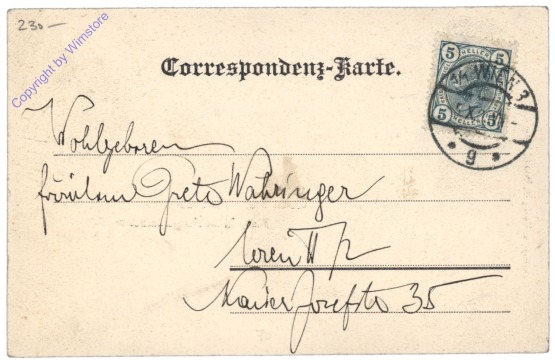 230-
Copyright by Wimstore
Correspondenz-Karte.
5 HELLER 5
5 5
1/1 WIEN 3
X
* g *
Wohlgeboren
Fräulein Grete Wahringer
Wien II/2
Kaiser Josefstr 35